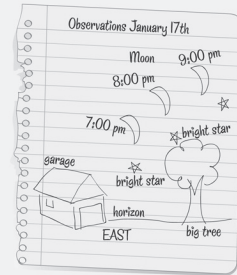 Observations January 17th
Moon
9:00 pm
8:00 pm
7:00 pm
bright star
garage
bright star
horizon
EAST
big tree